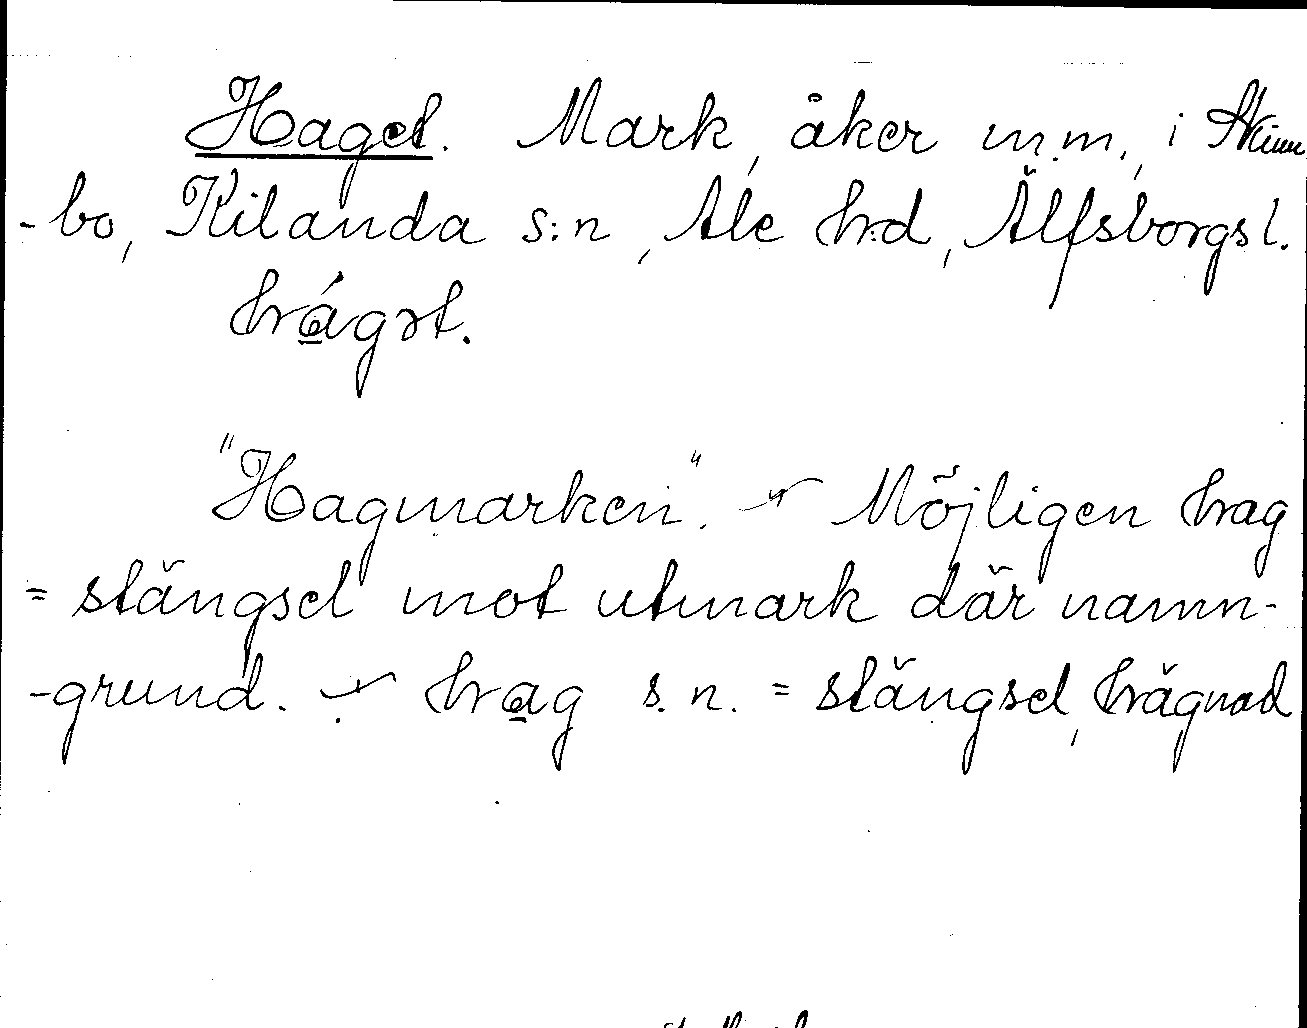 Haget. Mark, åker m.m., i Skinn
-bo, Kilanda s:n, Ale h:d, Älfsborgs l.
hágət.
"Hagmarken". Möjligen hag
= stängsel mot utmark där namn-
-grund. hag s. n. = stängsel, hägnad